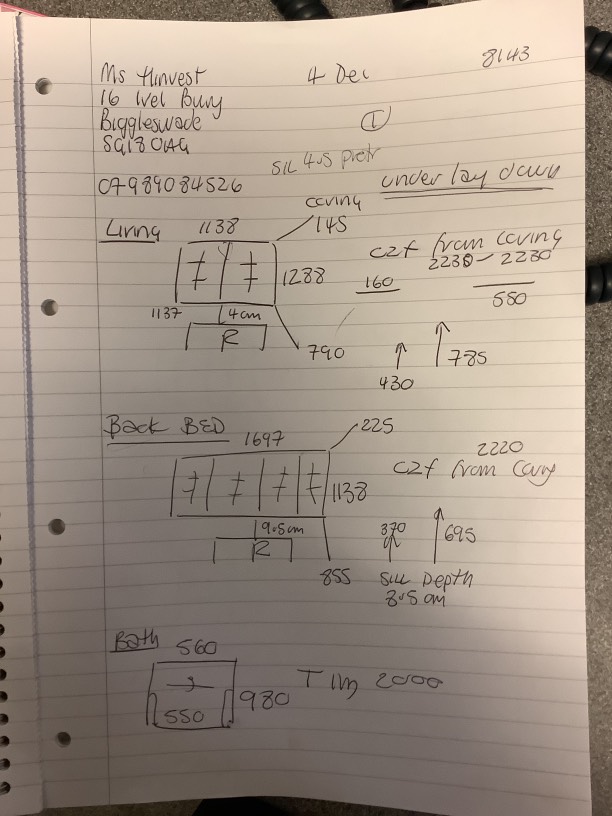 Ms Hinvest 4 Dec 8143
16 Ivel Bury
Biggleswade
SG18 0AG
①
SIL 4.5
07989084526 underlay down
Living 1138 coving 145
c2f from coving
2235 - 2230
1288 160 550
1137 14cm
R 790 430 785
Back BED 1697 225
2220
c2f from Coving
1138
19.5cm 370 695
R
855 SILL Depth
8.5cm
Bath 560
550 980 T 2000